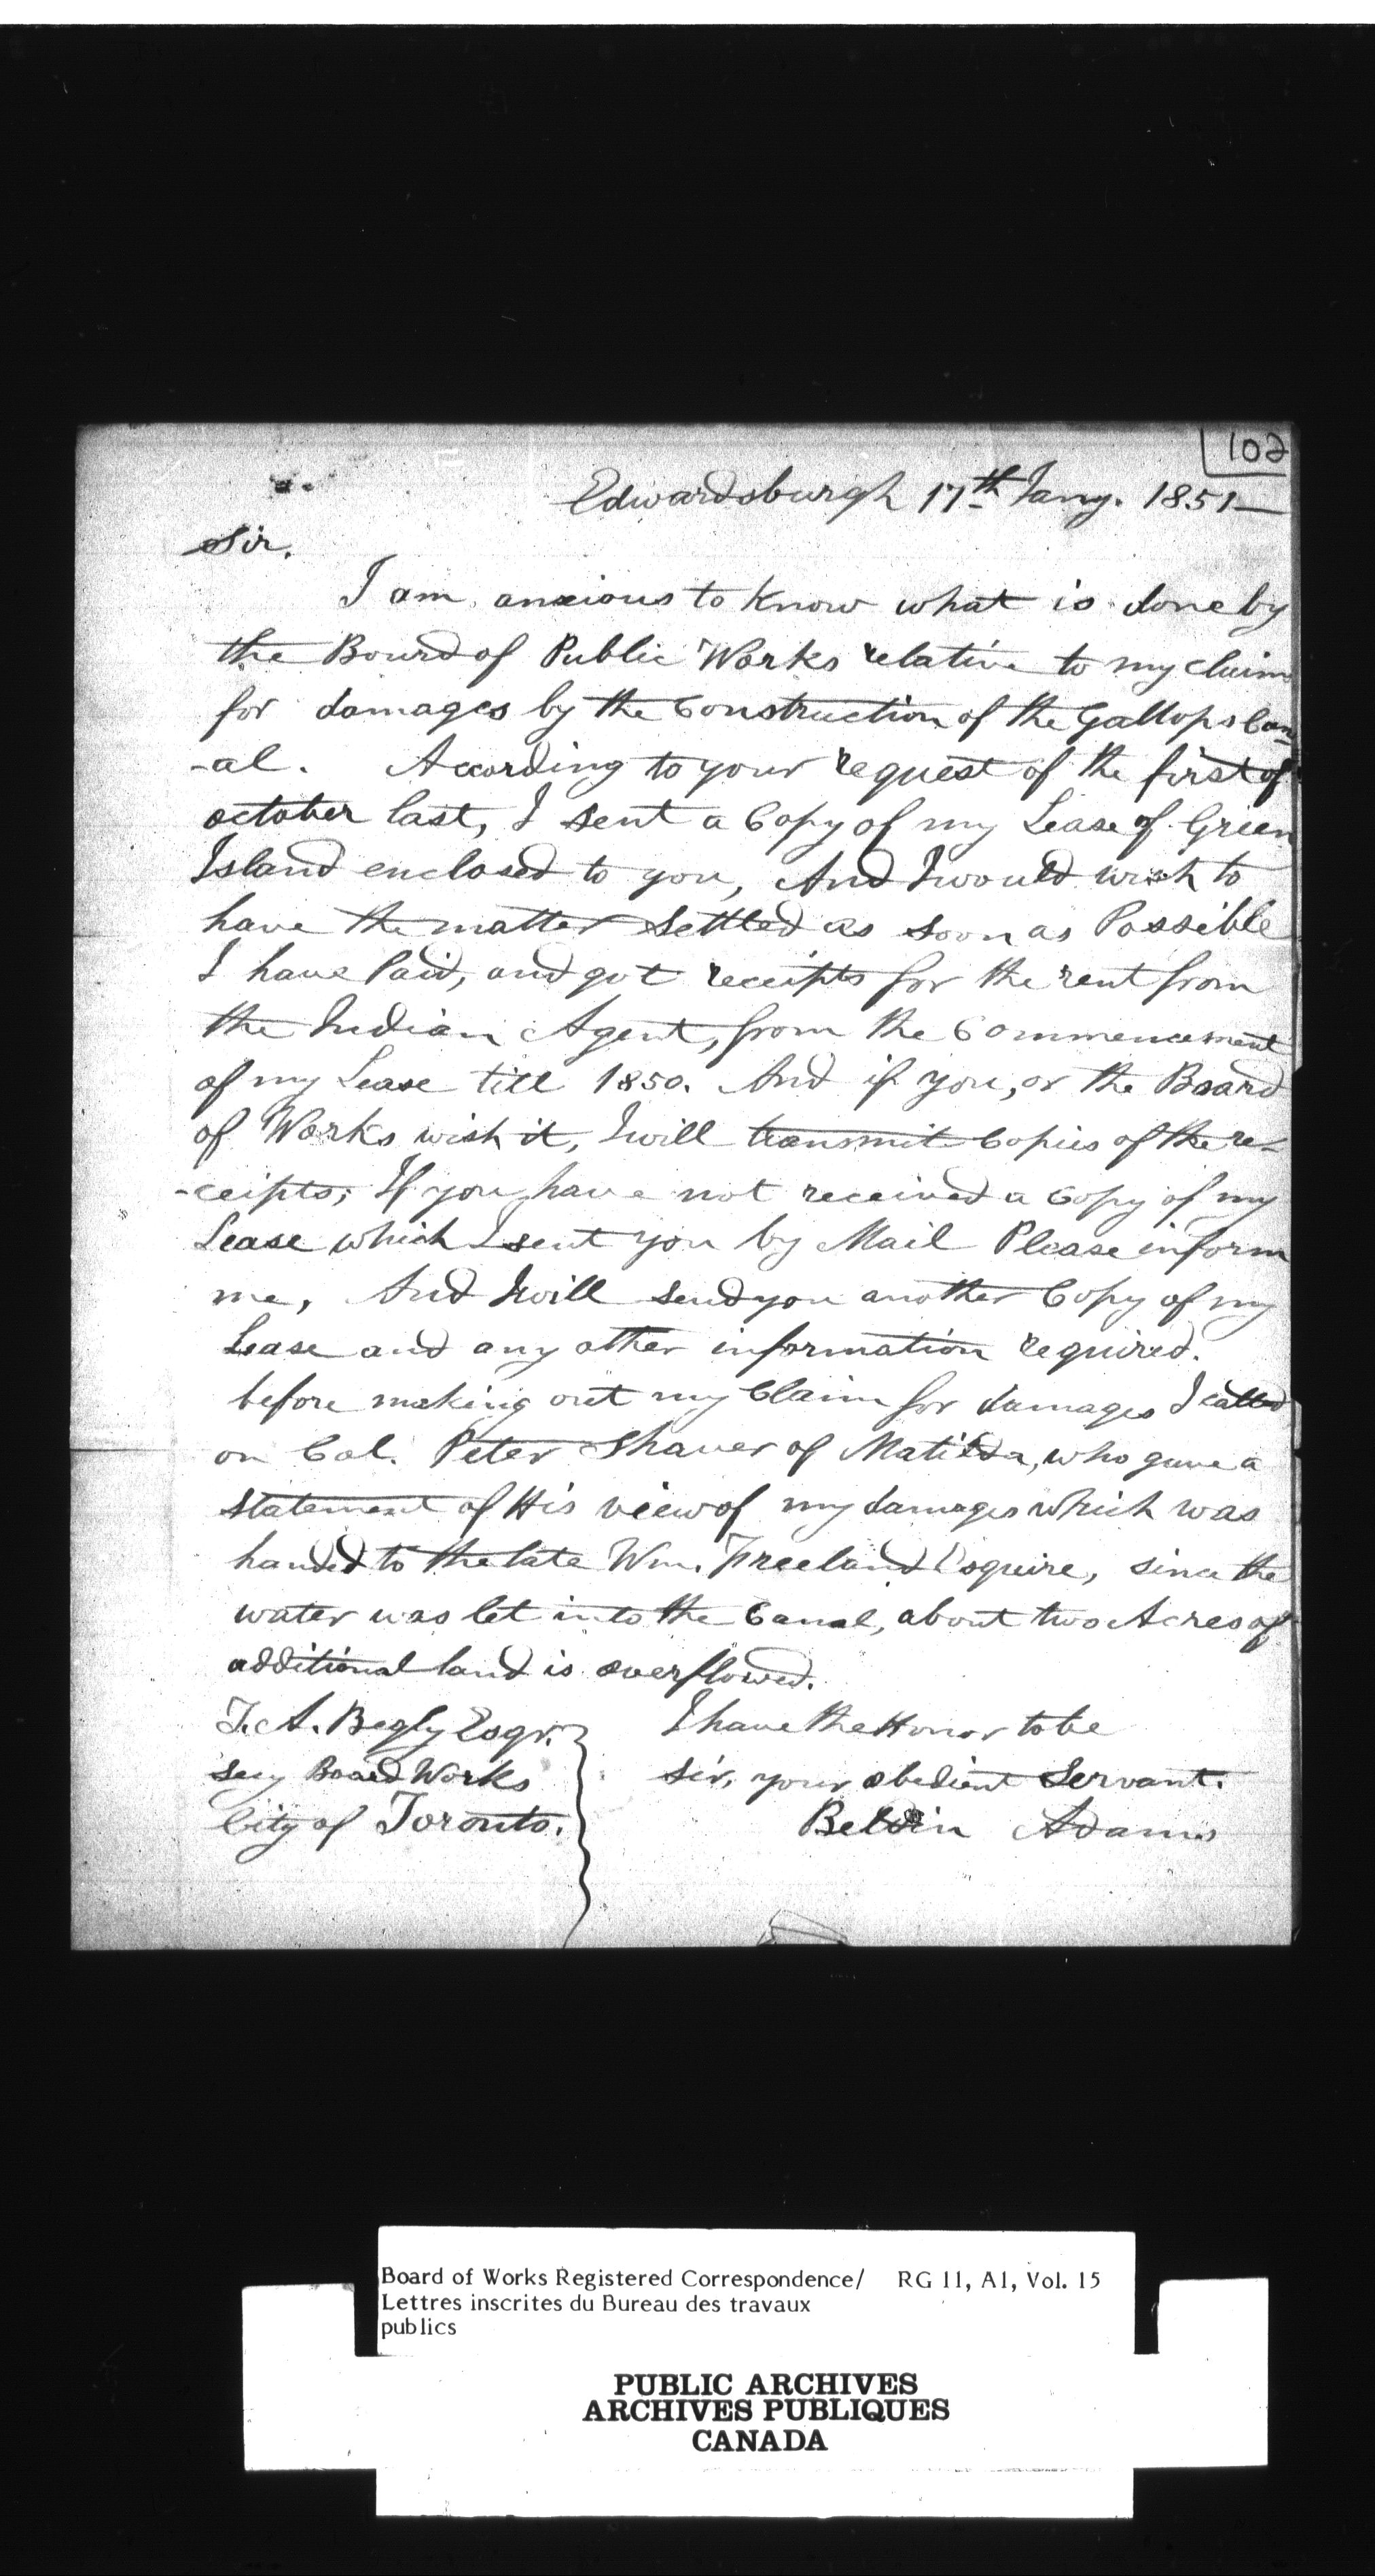 102
Edwardsburgh 17th Jany. 1851
Sir.
I am anxious to know what is done by
the Board of Public Works relative to my claim
for damages by the Construction of the Gallops Can
-al. According to your request of the first of
october last, I sent a Copy of my Lease of Green
Island enclosed to you, And I would wish to
have the matter Settled as soon as Possible
I have Paid, and got receipts for the rent from
the Indian Agent, from the Commencement
of my Lease till 1850. And if you, or the Board
of Works wish it, I will transmit Copies of the re-
-ceipts; If you have not received a Copy of my
Lease which I sent you by Mail Please inform
me, And I will send you another Copy of my
Lease and any other information required.
before making out my Claim for damages I called
on Col. Peter Shaver of Matilda, who gave a
statement of His view of my damages which was
handed to the late Wm. Freeland Esquire, since the
water was let into the Canal, about two Acres of
additional land is overflowed.
T. A. Begly Esqr. I have the Honor to be
Secy Board Works Sir, your obedient Servant.
City of Toronto. Adams
Board of Works Registered Correspondence/ RG 11, A1, Vol. 15
Lettres inscrites du Bureau des travaux
publics
PUBLIC ARCHIVES
ARCHIVES PUBLIQUES
CANADA